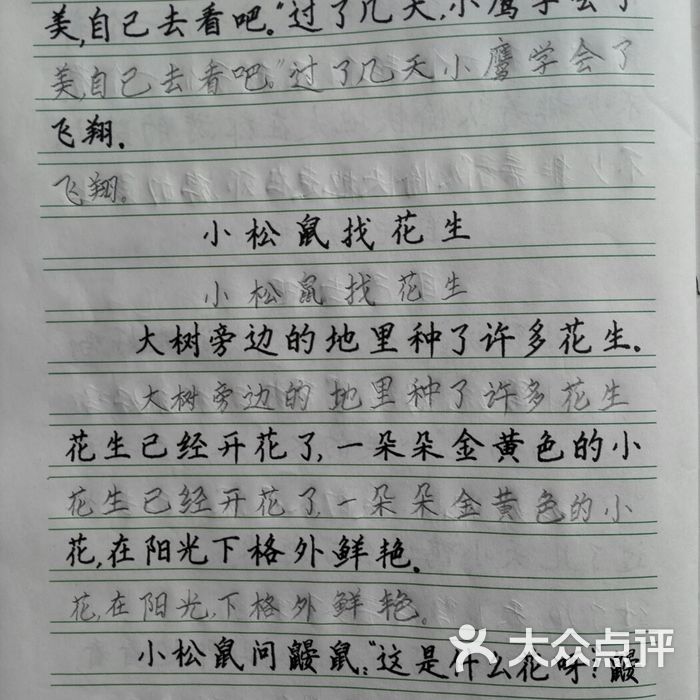 美,自己去看吧。”过了几天,小鹰学会了
美,自己去看吧。”过了几天小鹰学会了
飞翔。
飞翔。
小松鼠找花生
小松鼠找花生
大树旁边的地里种了许多花生。
大树旁边的地里种了许多花生
花生已经开花了,一朵朵金黄色的小
花生已经开花了,一朵朵,金黄色的小
花,在阳光下格外鲜艳。
花,在阳光,下格外鲜艳。
小松鼠问鼹鼠:“这是什么花呀?”鼹
大众点评